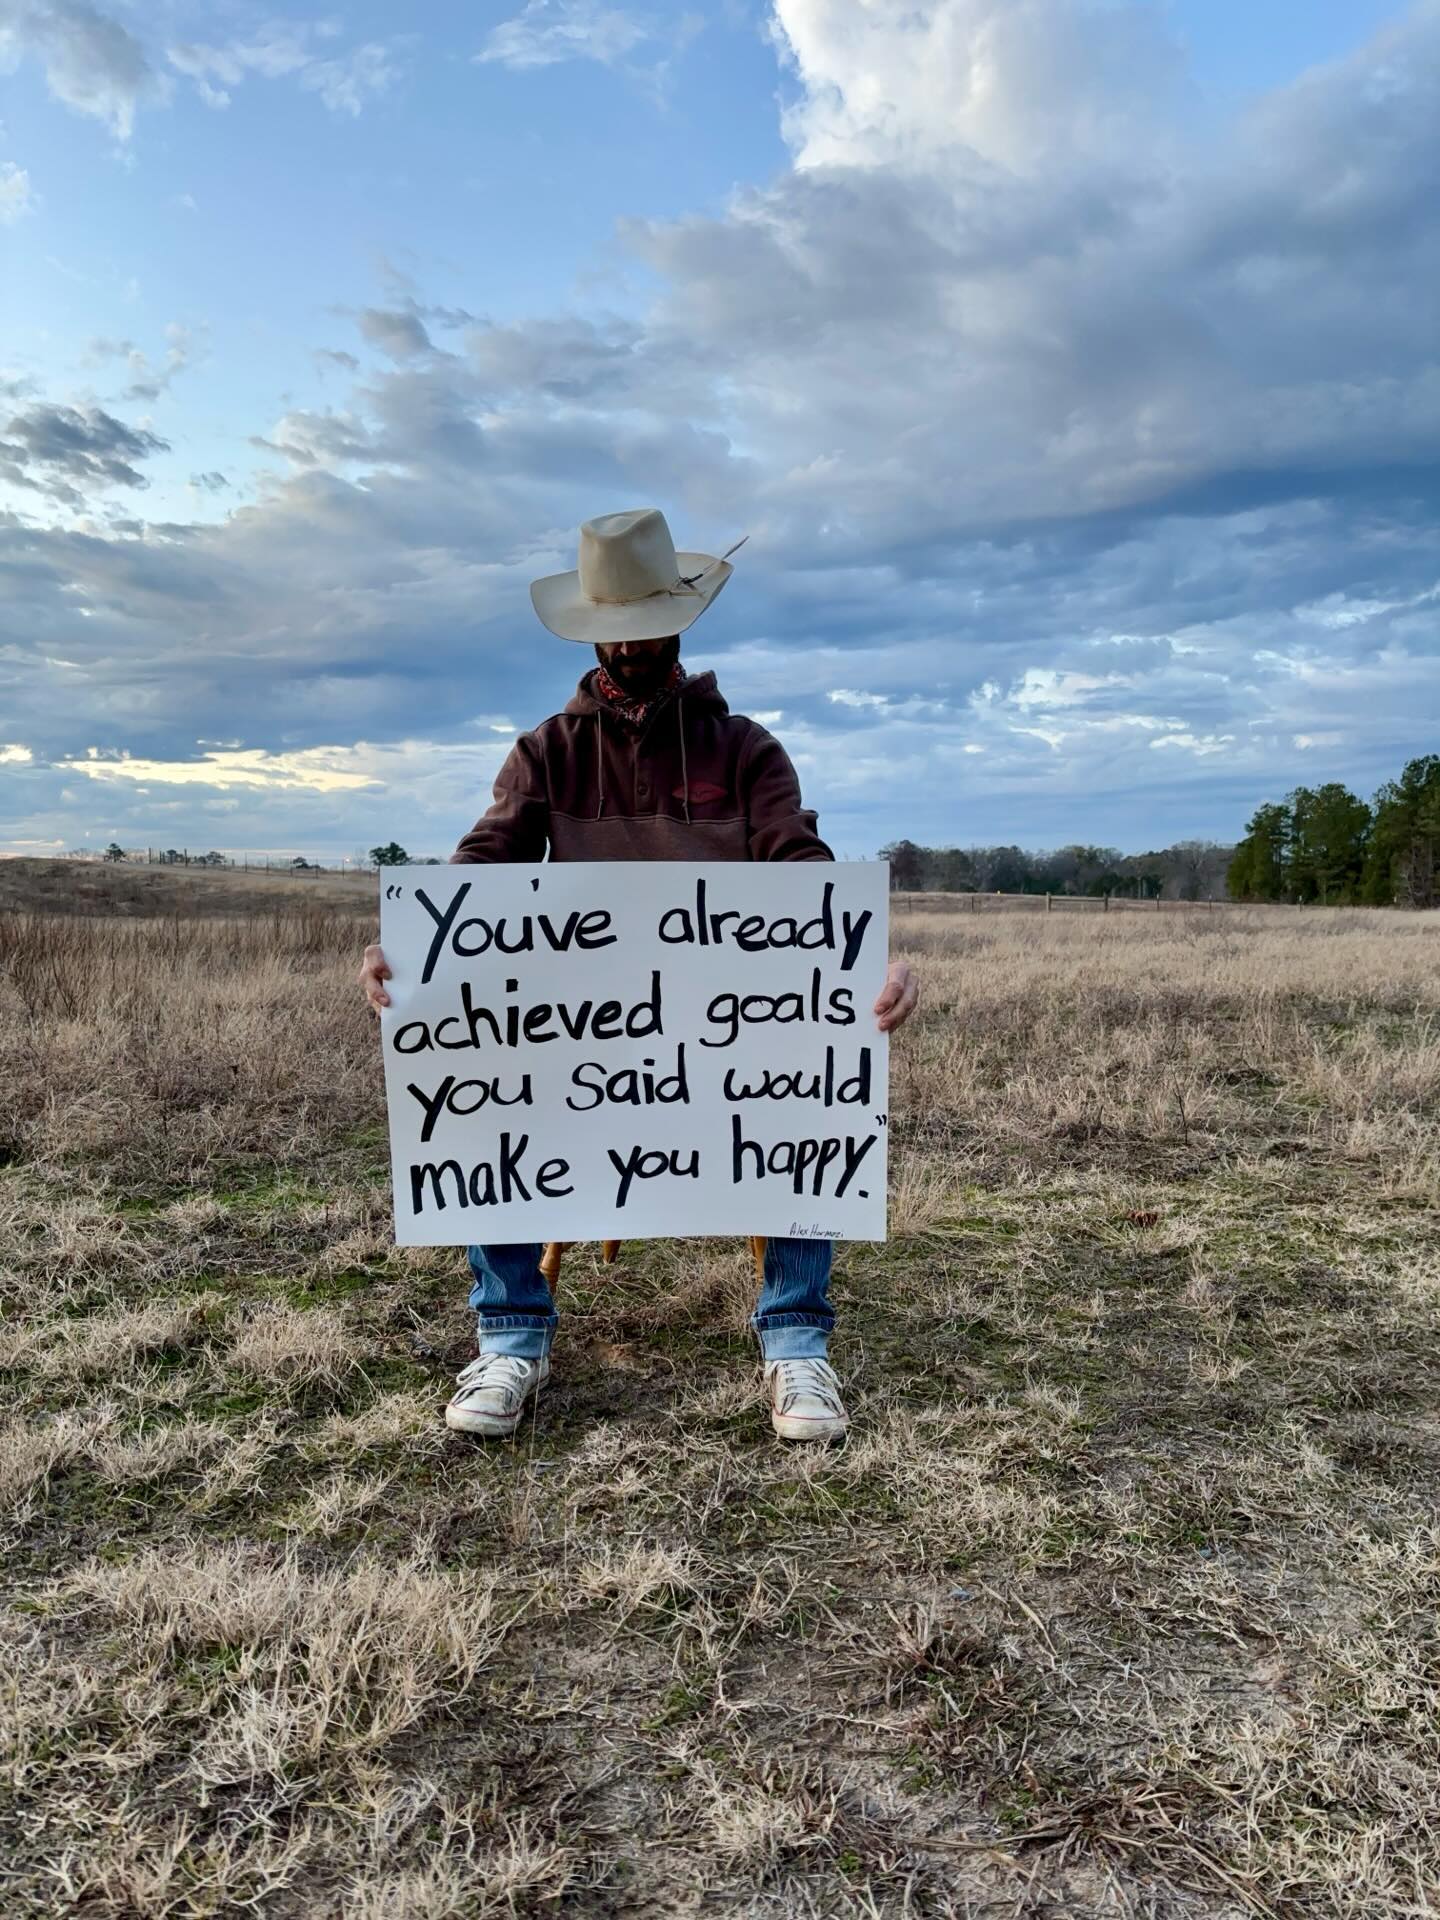 "You've already
achieved goals
you said would
make you happy."
Alex Hormozi